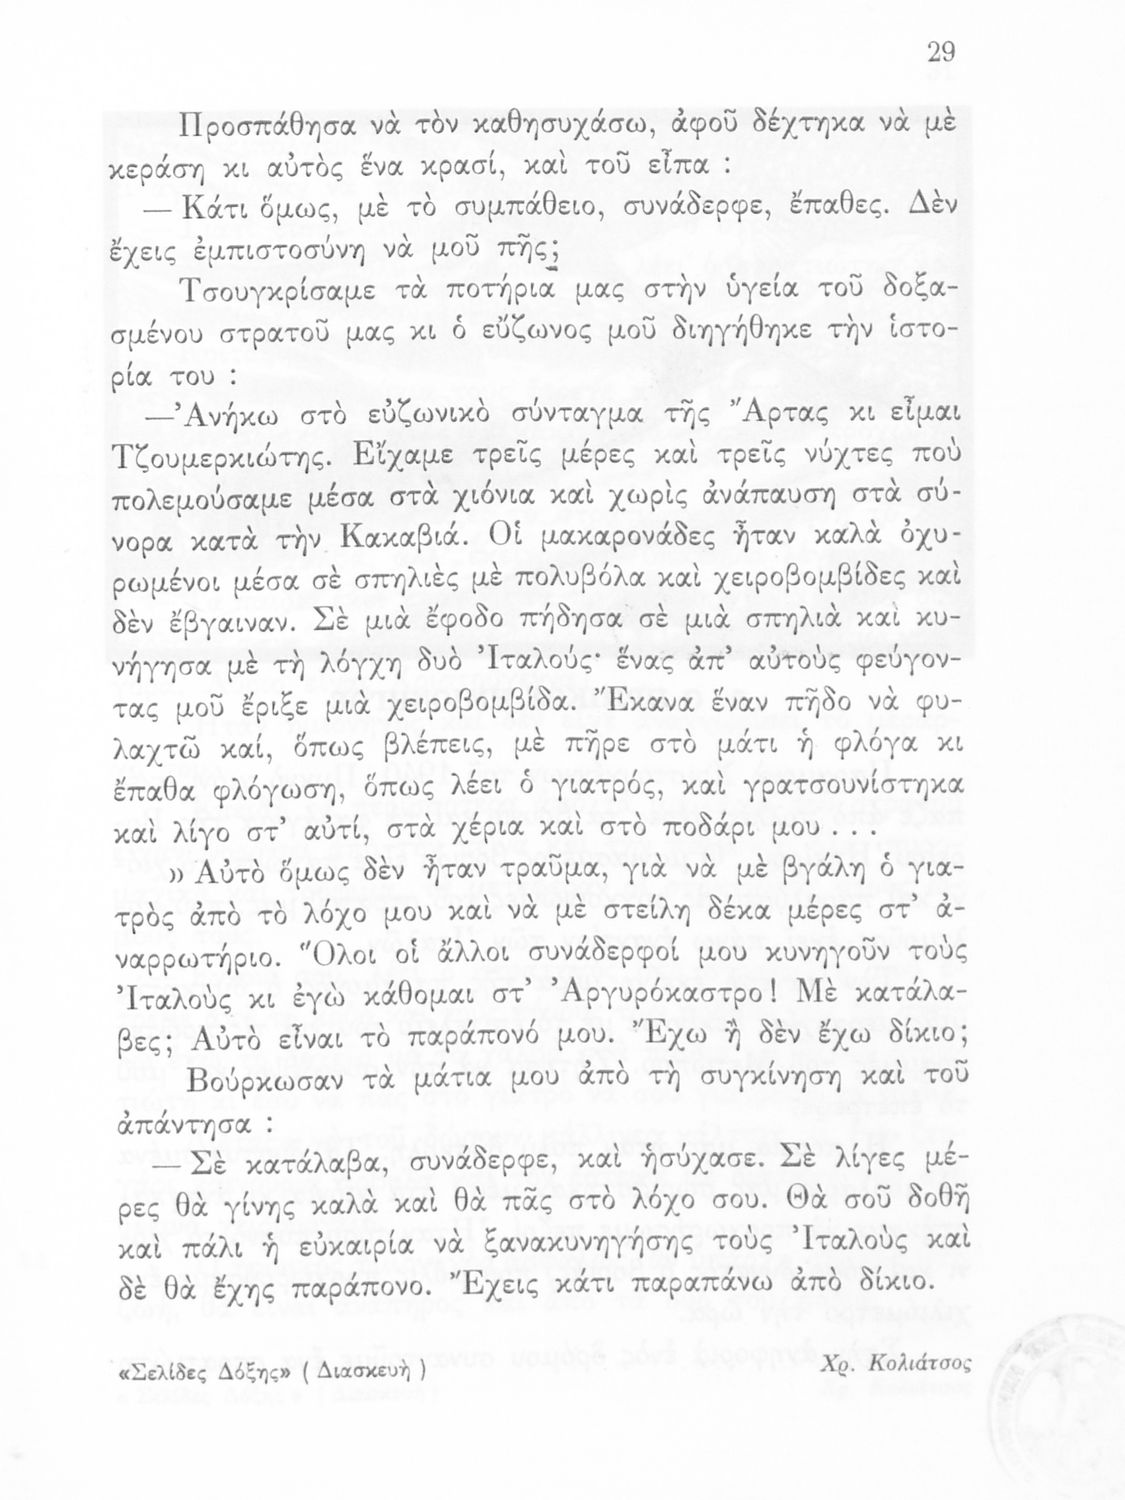 29
Προσπάθησα νὰ τὸν καθησυχάσω, ἀφοῦ δέχτηκα νὰ μὲ
κεράση κι αὐτὸς ἕνα κρασί, καὶ τοῦ εἶπα :
— Κάτι ὅμως, μὲ τὸ συμπάθειο, συνάδερφε, ἔπαθες. Δὲν
ἔχεις ἐμπιστοσύνη νὰ μοῦ πῆς;
Τσουγκρίσαμε τὰ ποτήρια μας στὴν ὑγεία τοῦ δοξα-
σμένου στρατοῦ μας κι ὁ εὔζωνος μοῦ διηγήθηκε τὴν ἱστο-
ρία του :
—Ἀνήκω στὸ εὐζωνικὸ σύνταγμα τῆς Ἄρτας κι εἶμαι
Τζουμερκιώτης. Εἴχαμε τρεῖς μέρες καὶ τρεῖς νύχτες ποὺ
πολεμούσαμε μέσα στὰ χιόνια καὶ χωρὶς ἀνάπαυση στὰ σύ-
νορα κατὰ τὴν Κακαβιά. Οἱ μακαρονάδες ἦταν καλὰ ὀχυ-
ρωμένοι μέσα σὲ σπηλιὲς μὲ πολυβόλα καὶ χειροβομβίδες καὶ
δὲν ἔβγαιναν. Σὲ μιὰ ἔφοδο πήδησα σὲ μιὰ σπηλιὰ καὶ κυ-
νήγησα μὲ τὴ λόγχη δυὸ Ἰταλούς· ἕνας ἀπ’ αὐτοὺς φεύγον-
τας μοῦ ἔριξε μιὰ χειροβομβίδα. Ἔκανα ἕναν πῆδο νὰ φυ-
λαχτῶ καί, ὅπως βλέπεις, μὲ πῆρε στὸ μάτι ἡ φλόγα κι
ἔπαθα φλόγωση, ὅπως λέει ὁ γιατρός, καὶ γρατσουνίστηκα
καὶ λίγο στ’ αὐτί, στὰ χέρια καὶ στὸ ποδάρι μου . . .
» Αὐτὸ ὅμως δὲν ἦταν τραῦμα, γιὰ νὰ μὲ βγάλη ὁ για-
τρὸς ἀπὸ τὸ λόχο μου καὶ νὰ μὲ στείλη δέκα μέρες στ’ ἀ-
ναρρωτήριο. Ὅλοι οἱ ἄλλοι συνάδερφοί μου κυνηγοῦν τοὺς
Ἰταλοὺς κι ἐγὼ κάθομαι στ’ Ἀργυρόκαστρο! Μὲ κατάλα-
βες; Αὐτὸ εἶναι τὸ παράπονό μου. Ἔχω ἢ δὲν ἔχω δίκιο;
Βούρκωσαν τὰ μάτια μου ἀπὸ τὴ συγκίνηση καὶ τοῦ
ἀπάντησα :
— Σὲ κατάλαβα, συνάδερφε, καὶ ἡσύχασε. Σὲ λίγες μέ-
ρες θὰ γίνης καλὰ καὶ θὰ πᾶς στὸ λόχο σου. Θὰ σοῦ δοθῆ
καὶ πάλι ἡ εὐκαιρία νὰ ξανακυνηγήσης τοὺς Ἰταλοὺς καὶ
δὲ θὰ ἔχης παράπονο. Ἔχεις κάτι παραπάνω ἀπὸ δίκιο.
«Σελίδες Δόξης» ( Διασκευὴ )
Χρ. Κολιάτσος